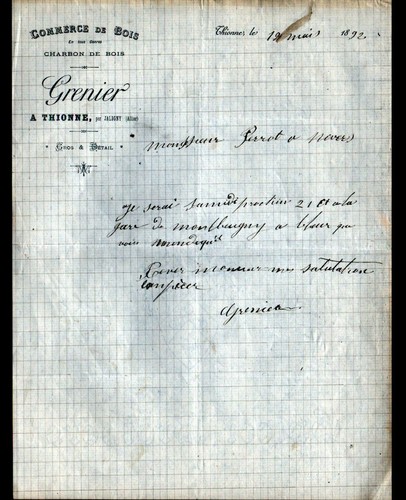 COMMERCE DE BOIS
En tous Genres
CHARBON DE BOIS
Grenier
A THIONNE, par JALIGNY (Allier)
GROS & DÉTAIL
Thionne, le 19 mai 1892
Monsieur Perrot a Nevers
Je serai samedi prochin 21 ct a la
gare de montbeugny a
vous
mes salutation
Grenier